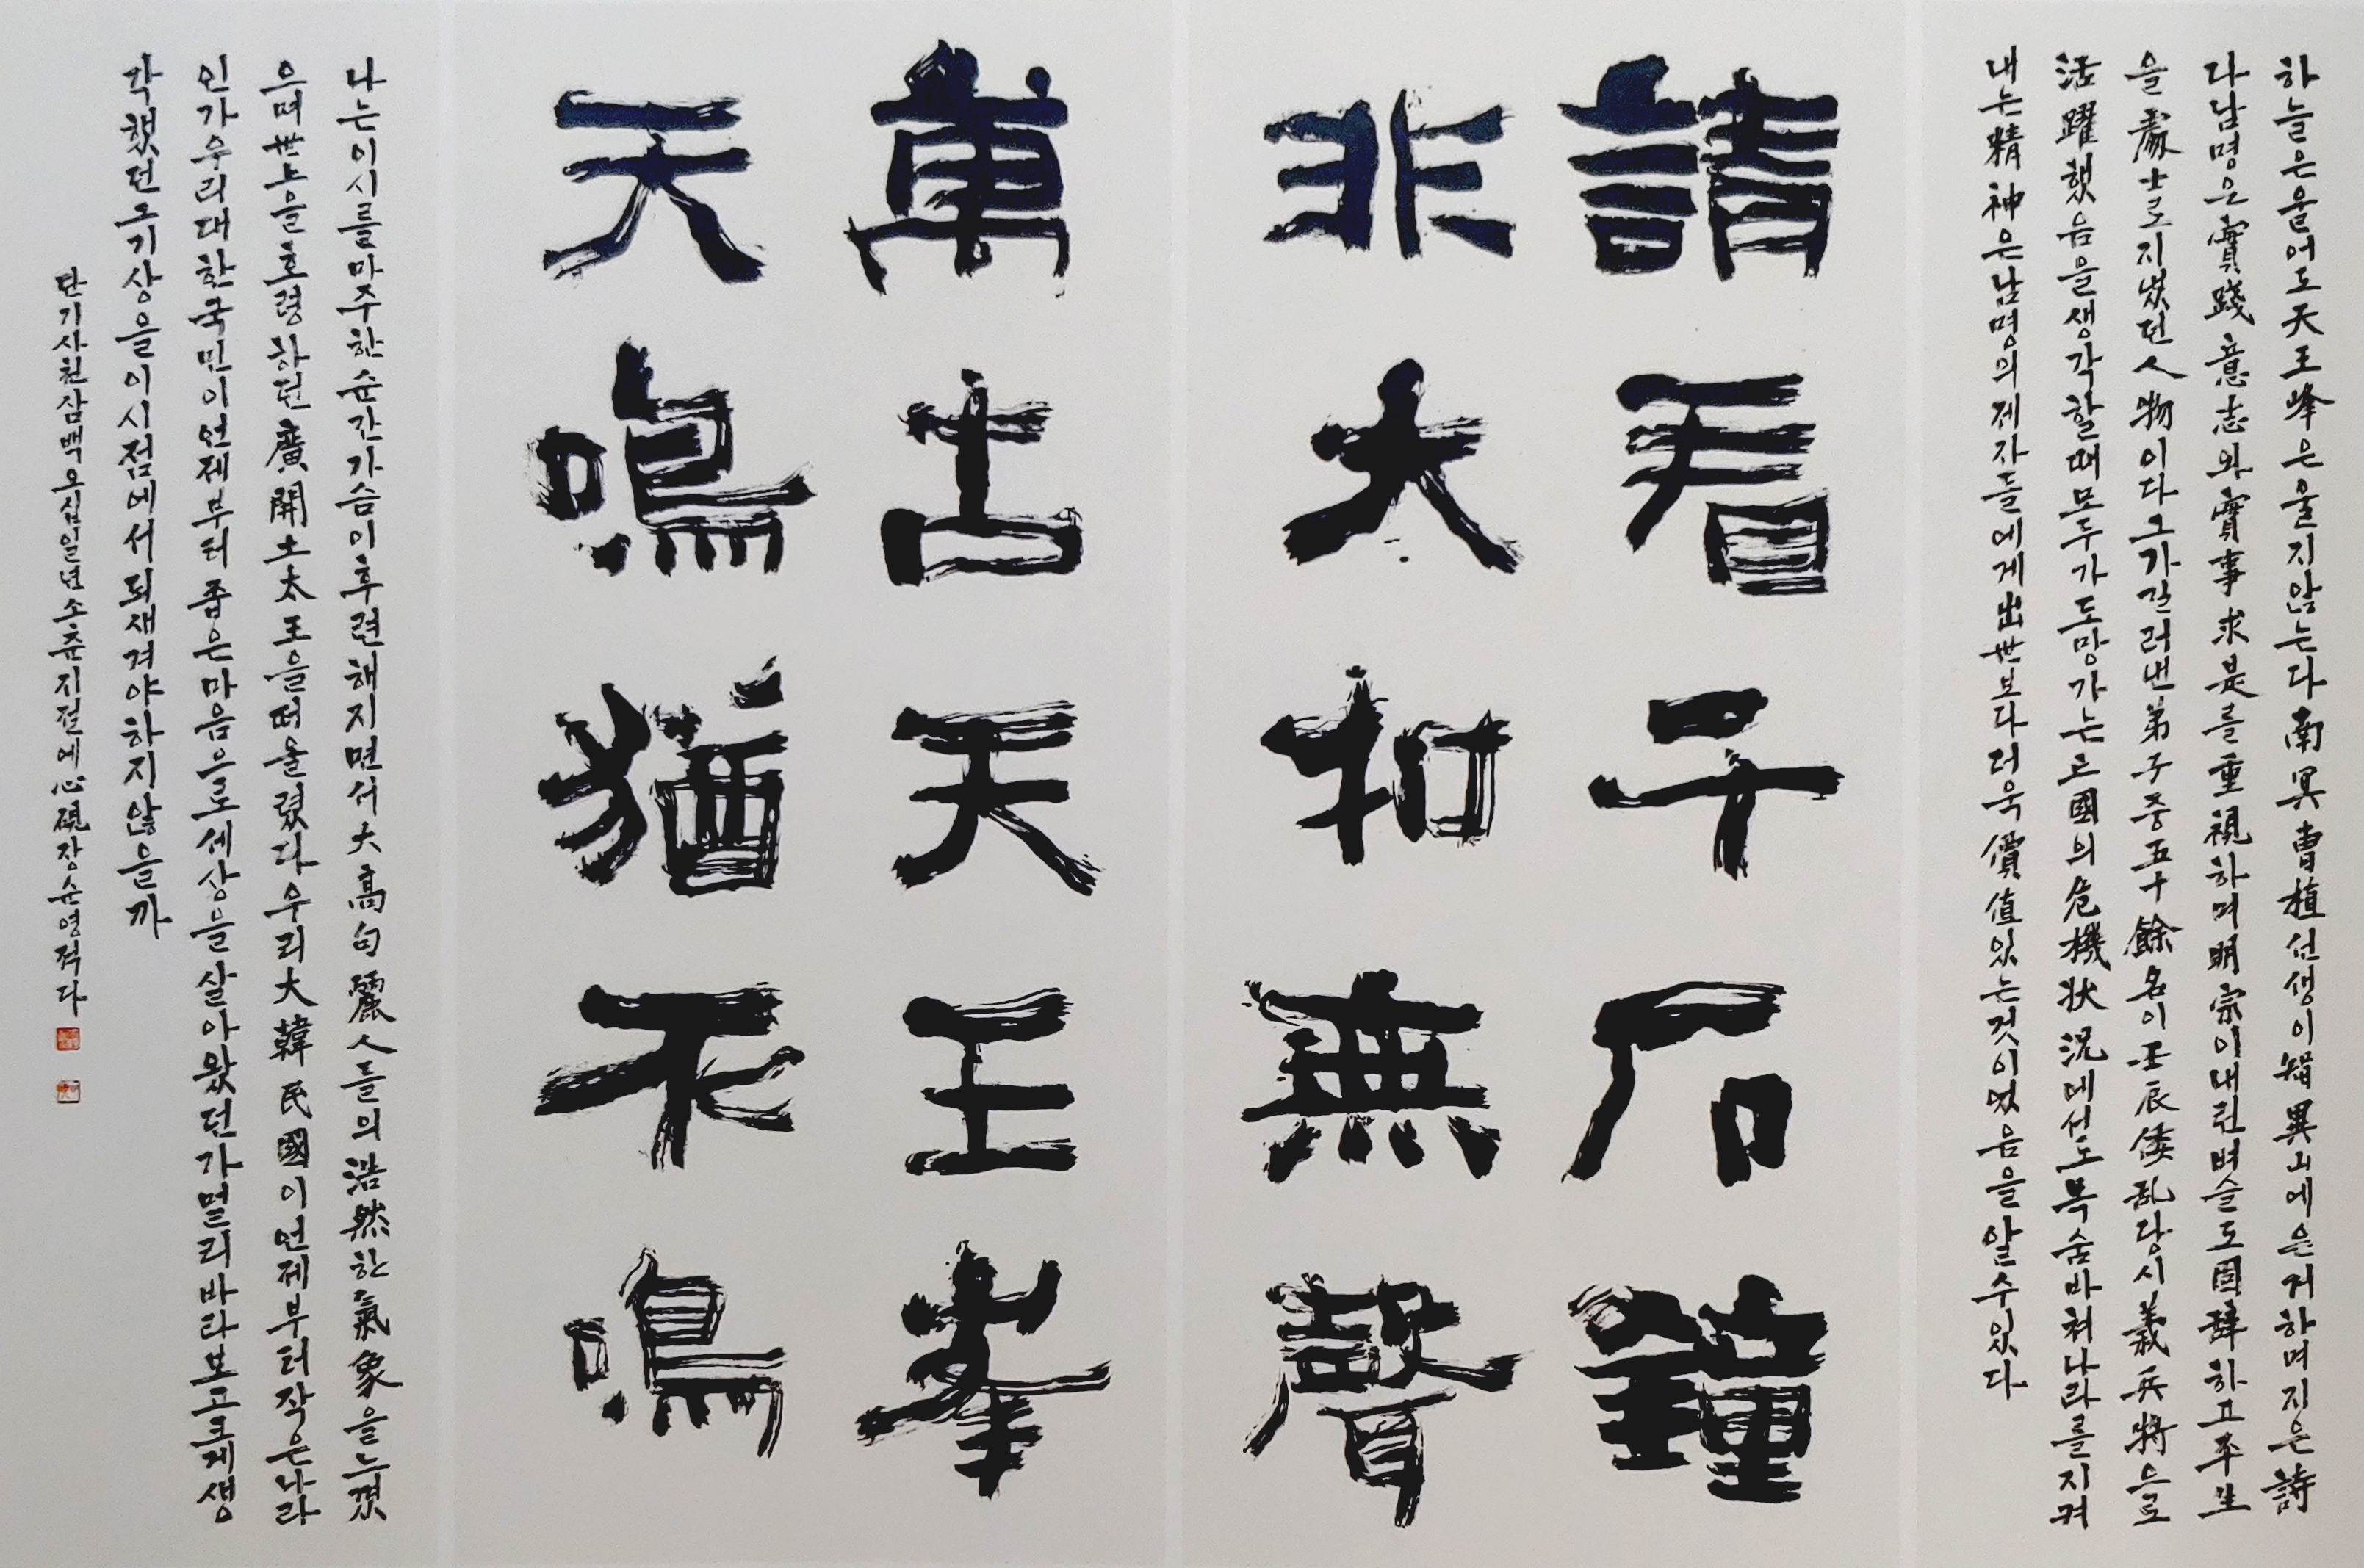 하늘은울어도天王峰은울지않는다南冥曺植선생이智異山에은거하며지은詩
다남명은實踐意志와實事求是를重視하며明宗이내린벼슬도固辭하고平生
을處士로지냈던人物이다그가길러낸弟子중五十餘名이壬辰倭乱당시義兵將으로
活躍했음을생각할때모두가도망가는고國의危機状況에서도목숨바쳐나라를지켜
내는精神은남명의제자들에게出世보다더욱價値있는것이었음을알수있다
請看千石鐘
非大扣無聲
萬古天王峯
天鳴猶不鳴
나는이시를마주한순간가슴이후련해지면서大高句麗人들의浩然한氣象을느꼈
으며世上을호령하던廣開土太王을떠올렸다우리大韓民國이언제부터작은나라
인가우리대한국민이언제부터좁은마음으로세상을살아왔던가멀리바라보고크게생
각했던그기상을이시점에서되새겨야하지않을까
단기사천삼백오십일년소춘지절에心硯장순영적다